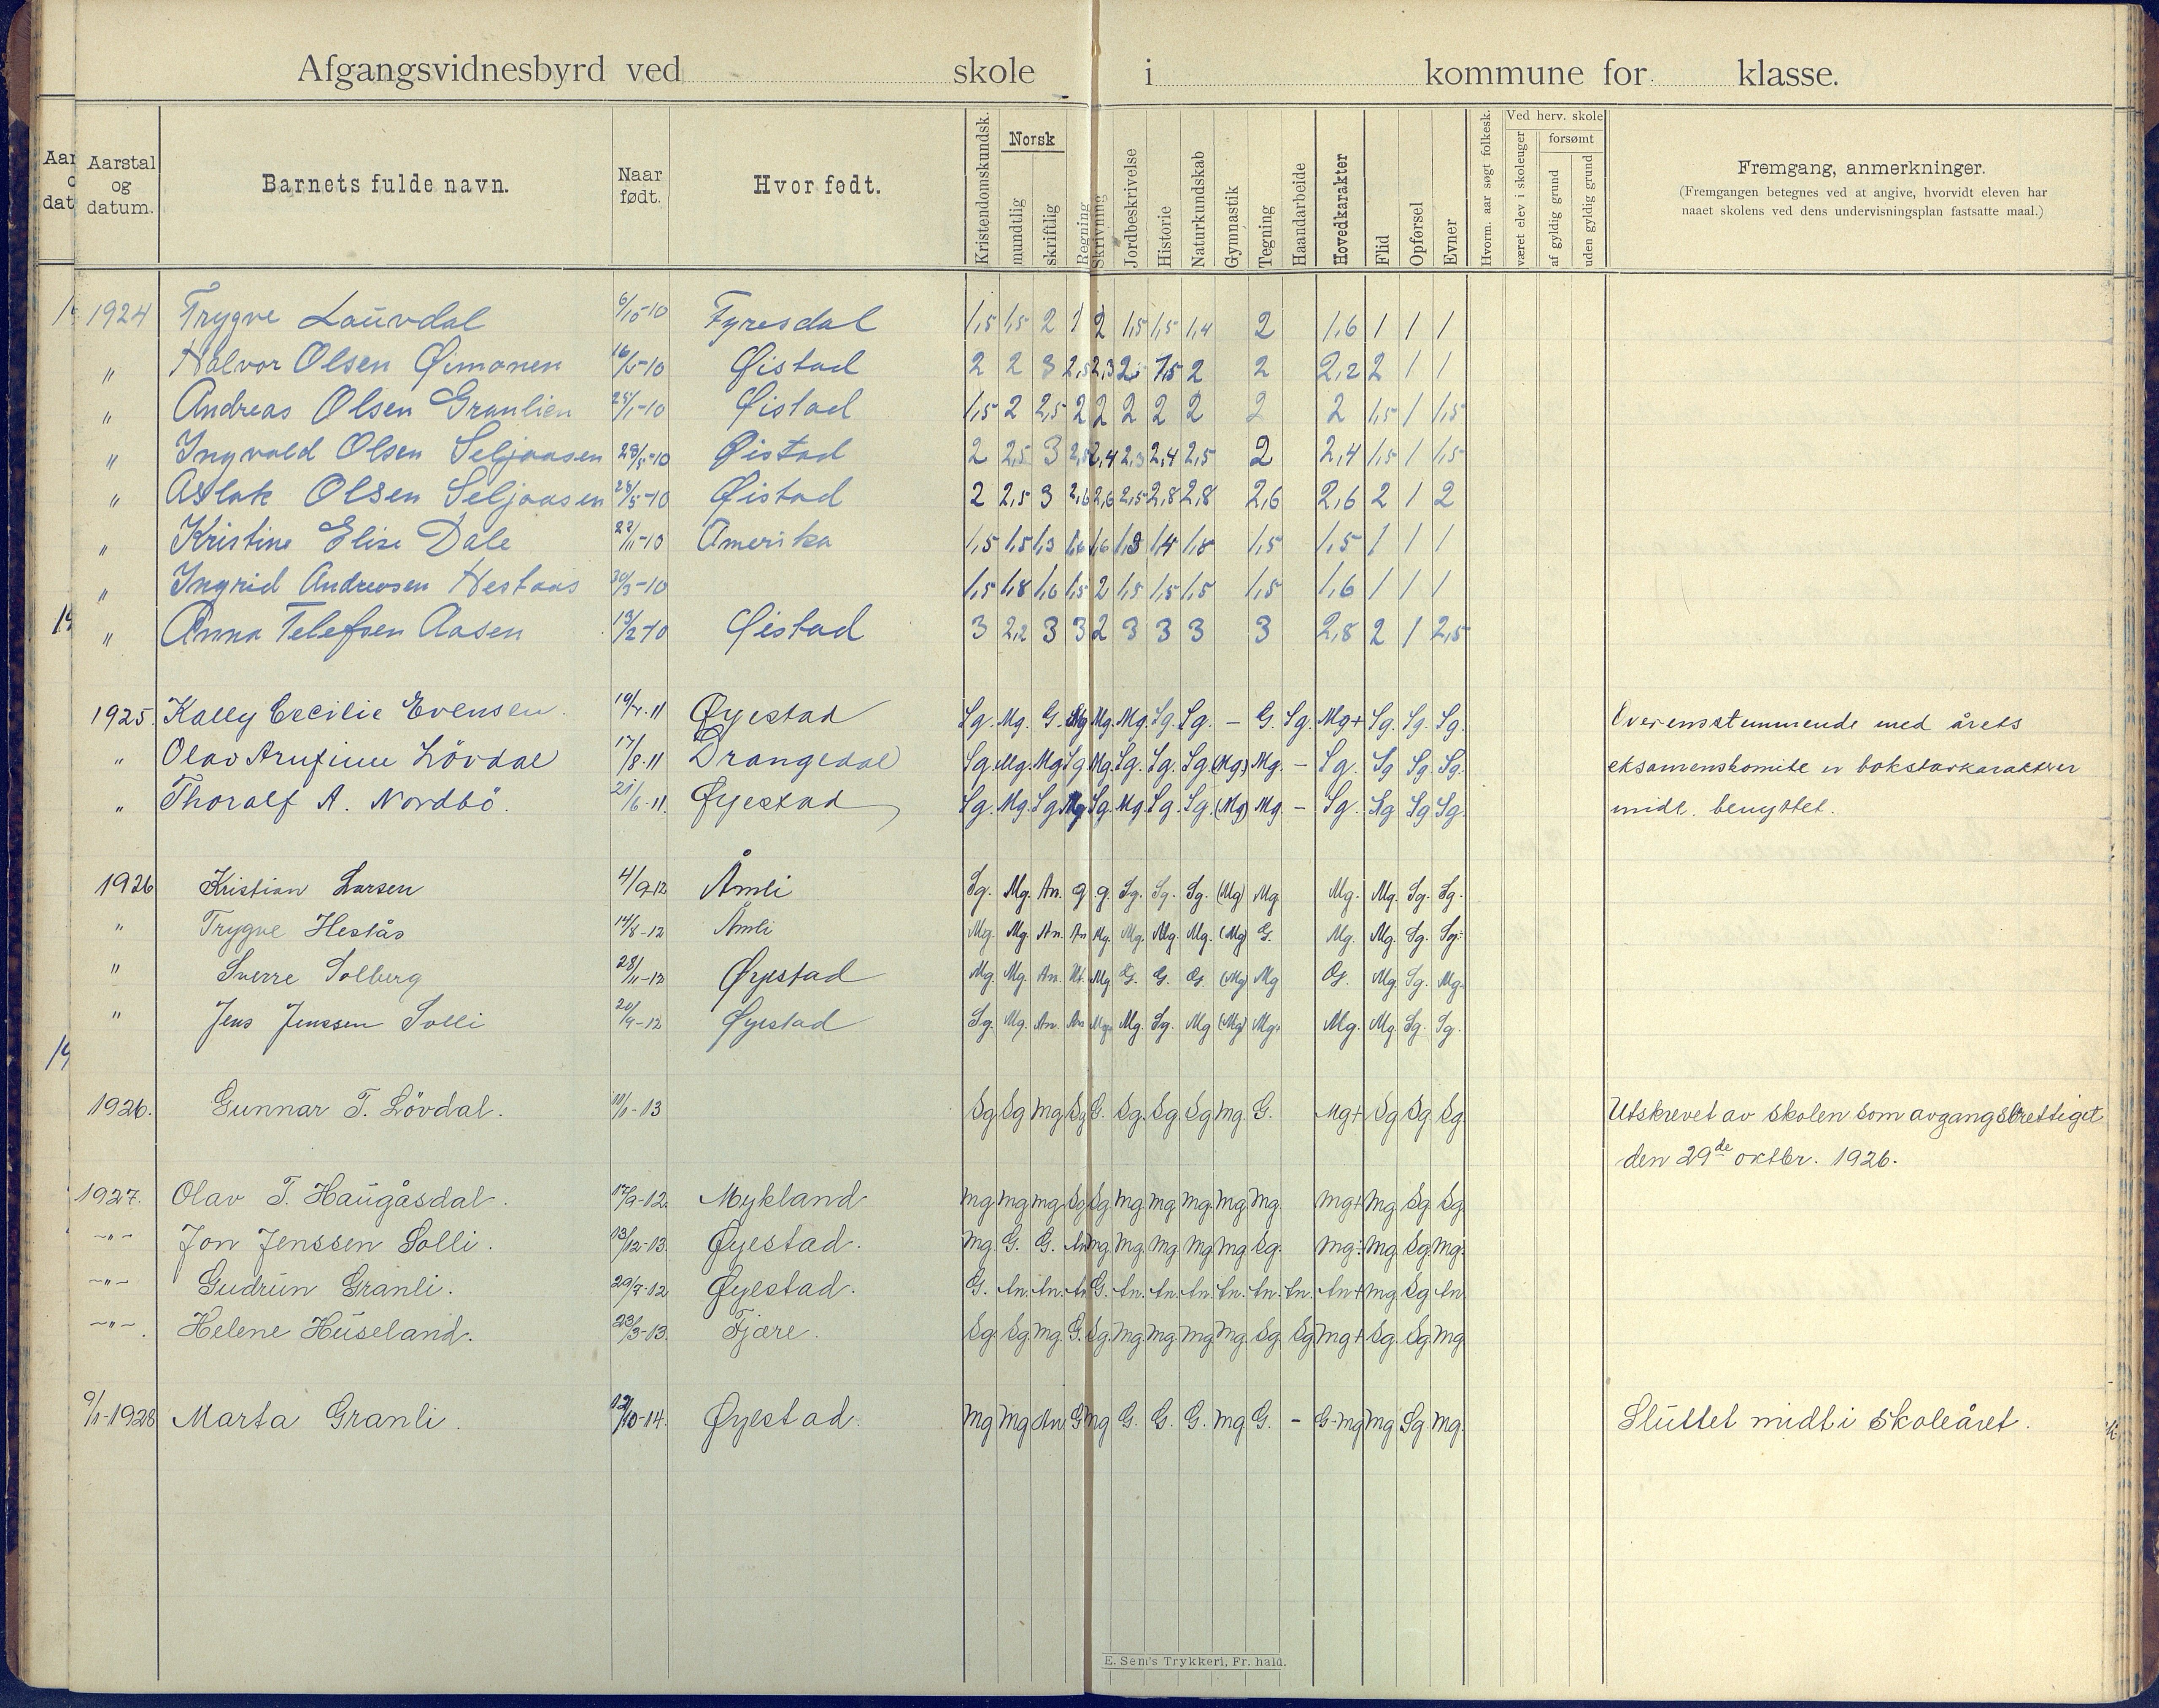 Afgangsvidnesbyrd ved skole i kommune for klasse.
Aarstal og datum. Barnets fulde navn. Naar født. Hvor født. Kristendomskundsk. Norsk mundtlig skriftlig Regning Skrivning Jordbeskrivelse Historie Naturkundskab Gymnastik Tegning Haandarbeide Hovedkarakter Flid Opførsel Evner Hvorm. aar søgt folkesk. Ved herv. skole været elev i skoleuger forsømt af gyldig grund uden gyldig grund Fremgang, anmerkninger.
(Fremgangen betegnes ved at angive, hvorvidt eleven har
naaet skolens ved dens undervisningsplan fastsatte maal.)
1924 Trygve Lauvdal 6/10-10 Fyresdal 1,5 1,5 2 1 2 1,5 1,5 1,4 2 1,6 1 1 1
" Halvor Olsen Øimonen Øistad 2 2 3 2,5 2,3 2 1,5 2 2 2,2 2 1 1
" Andreas Olsen Granlien 25/1-10 Øistad 1,5 2 2,5 2 2 2 2 2 2 2 1,5 1 1,5
" Ingvald Olsen Seljaasen 28/5-10 Øistad 2 2,5 3 2,5 2,4 2,3 2,4 2,5 2 2,4 1,5 1 1,5
" Aslak Olsen Seljaasen 28/5-10 Øistad 2 2,5 3 2,6 2,6 2,5 2,8 2,8 2,6 2,6 2 1 2
" Kristine Elise Dale 22/11-10 Amerika 1,5 1,5 1,3 1,6 1,6 1,3 1,4 1,8 1,5 1,5 1 1 1
" Ingrid Andreasen Hestaas 30/3-10 1,5 1,8 1,6 1,5 2 1,5 1,5 1,5 1,5 1,6 1 1 1
" Anna Telefsen Aasen 13/2-10 Øistad 3 2,2 3 3 2 3 3 3 3 2,8 2 1 2,5
1925. Kally Cecilie Evensen. 19/4-11 Øyestad Sg. Mg. G. Mg Mg. Mg. Sg. Sg. – G. Sg. Mg+ Sg. Sg. Sg. Overensstemmende med årets
" Olav Arnfinn Lövdal 17/8-11 Drangedal Sg. Mg. Mg. Sg Mg. Sg. Sg. Sg. (Mg) Mg. – Sg. Sg Sg. Sg. eksamenskomite er bokstavkarakterer
" Thoralf A. Nordbö. 21/6-11. Øyestad Sg. Mg. Sg Mg Sg. Mg Sg. Sg. (Mg) Mg. – Sg. Sg Sg Sg. midl. benyttet.
1926 Kristian Larsen 4/9-12 Åmli Sg. Mg. An. g. g. Sg. Sg. Sg. (Mg) Mg Mg. Mg. Sg. Sg.
" Trygve Hestås 14/8-12 Åmli Mg. Mg. An. An Mg. Mg. Mg. Mg. (Mg) G. Mg. Mg. Sg. Sg.
" Sverre Solberg 28/11-12 Øyestad Mg. Mg. An. Mg G. G. G. (Mg) Mg G. Mg. Sg. Mg.
" Jens Jenssen Solli 20/9-12 Øyestad Sg. Mg. An. An Mg. Mg. Sg. Mg (Mg) Mg. Mg. Mg. Sg. Sg.
1926. Gunnar T. Lövdal. 11/1-13 Sg Sg Mg Sg G. Sg. Sg. Sg Mg. G. Mg+ Sg Sg. Sg Utskrevet av skolen som avgangsberettiget
den 29de oktbr. 1926.
1927. Olav T. Haugåsdal. 17/9-12. Mykland Mg Mg Mg Sg Sg Mg Mg Mg. Mg. Mg. Mg+ Mg Sg. Sg
–"– Jon Jenssen Solli. 13/12-13. Øyestad. Mg. G. G. An Mg. Mg. Mg. Mg Mg Sg. Mg. Mg. Sg. Mg.
–"– Gudrun Granli. 29/7-12 Øyestad. G. An. An. An G. An. An. An. An. An. An. An+ Mg Sg An
–"–. Helene Huseland. 23/3-13. Fjære. Sg. Sg Mg. G. Sg. Mg. Mg. Mg. Mg. Sg. Sg Mg+ Sg. Sg Mg
9/1-1928 Marta Granli. 12/10-14. Øyestad. Mg Mg An G Mg G. G. G. Mg G. – G-Mg Mg Sg Mg. Sluttet midt i skoleåret.
E. Sem's Trykkeri, Fr. hald.